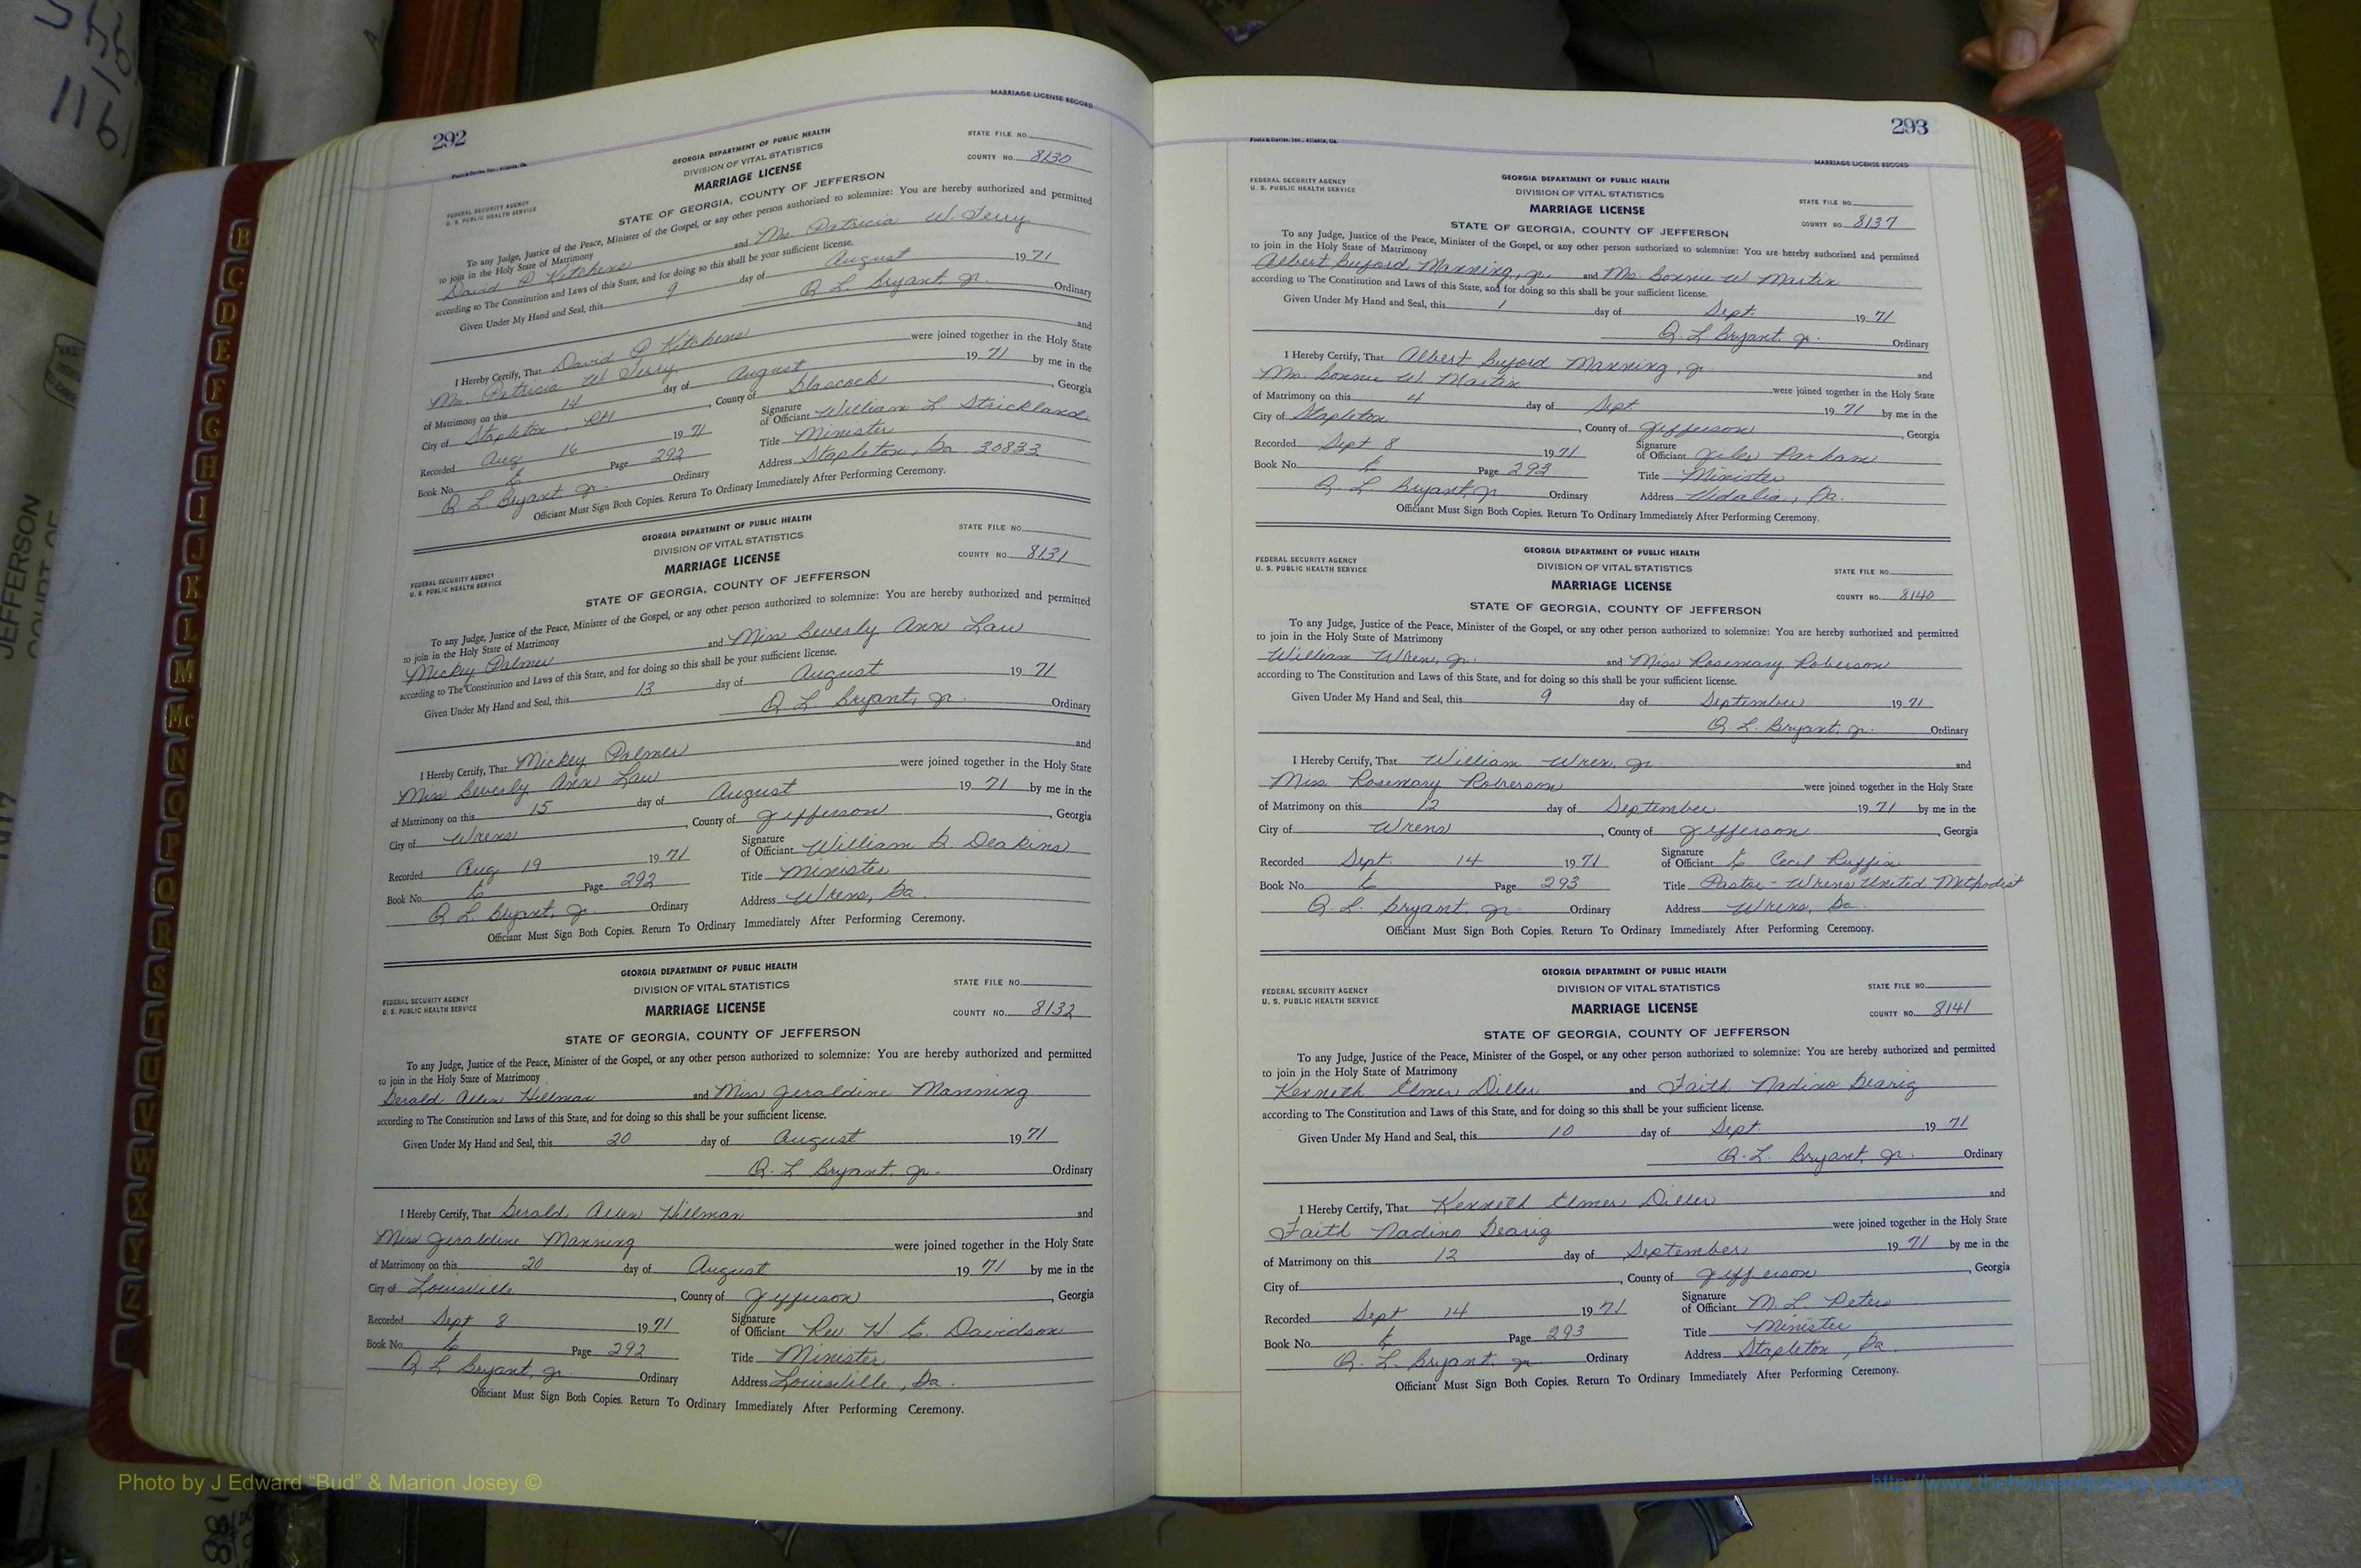 292
MARRIAGE LICENSE RECORD
GEORGIA DEPARTMENT OF PUBLIC HEALTH
DIVISION OF VITAL STATISTICS
MARRIAGE LICENSE
STATE FILE NO.
COUNTY NO. 8130
FEDERAL SECURITY AGENCY
U. S. PUBLIC HEALTH SERVICE
STATE OF GEORGIA, COUNTY OF JEFFERSON
To any Judge, Justice of the Peace, Minister of the Gospel, or any other person authorized to solemnize: You are hereby authorized and permitted
to join in the Holy State of Matrimony
David P Kitchens and Ms. Patricia W. Terry
according to The Constitution and Laws of this State, and for doing so this shall be your sufficient license.
Given Under My Hand and Seal, this 9 day of August 1971
Q L Bryant, Jr. Ordinary
I Hereby Certify, That David P Kitchens and
Ms. Patricia W Terry were joined together in the Holy State
of Matrimony on this 14 day of August 1971 by me in the
City of Stapleton, RH, County of Glascock, Georgia
Recorded Aug 16 1971 Signature of Officiant William L. Strickland
Book No. 6 Page 292 Title Minister
Q L Bryant, Jr. Ordinary Address Stapleton, Ga. 30823
Officiant Must Sign Both Copies. Return To Ordinary Immediately After Performing Ceremony.
GEORGIA DEPARTMENT OF PUBLIC HEALTH
DIVISION OF VITAL STATISTICS
MARRIAGE LICENSE
STATE FILE NO.
COUNTY NO. 8131
FEDERAL SECURITY AGENCY
U. S. PUBLIC HEALTH SERVICE
STATE OF GEORGIA, COUNTY OF JEFFERSON
To any Judge, Justice of the Peace, Minister of the Gospel, or any other person authorized to solemnize: You are hereby authorized and permitted
to join in the Holy State of Matrimony
Mickey Palmer and Miss Beverly Ann Law
according to The Constitution and Laws of this State, and for doing so this shall be your sufficient license.
Given Under My Hand and Seal, this 13 day of August 1971
Q L Bryant, Jr. Ordinary
I Hereby Certify, That Mickey Palmer and
Miss Beverly Ann Law were joined together in the Holy State
of Matrimony on this 15 day of August 1971 by me in the
City of Wrens, County of Jefferson, Georgia
Recorded Aug 19 1971 Signature of Officiant William G. Deakins
Book No. 6 Page 292 Title Minister
Q L Bryant, Jr. Ordinary Address Wrens, Ga.
Officiant Must Sign Both Copies. Return To Ordinary Immediately After Performing Ceremony.
GEORGIA DEPARTMENT OF PUBLIC HEALTH
DIVISION OF VITAL STATISTICS
MARRIAGE LICENSE
STATE FILE NO.
COUNTY NO. 8132
FEDERAL SECURITY AGENCY
U. S. PUBLIC HEALTH SERVICE
STATE OF GEORGIA, COUNTY OF JEFFERSON
To any Judge, Justice of the Peace, Minister of the Gospel, or any other person authorized to solemnize: You are hereby authorized and permitted
to join in the Holy State of Matrimony
Gerald Allen Hillman and Miss Geraldine Manning
according to The Constitution and Laws of this State, and for doing so this shall be your sufficient license.
Given Under My Hand and Seal, this 20 day of August 1971
Q. L Bryant, Jr. Ordinary
I Hereby Certify, That Gerald Allen Hillman and
Miss Geraldine Manning were joined together in the Holy State
of Matrimony on this 20 day of August 1971 by me in the
City of Louisville, County of Jefferson, Georgia
Recorded Sept 8 1971 Signature of Officiant Rev H. C. Davidson
Book No. 6 Page 292 Title Minister
Q L Bryant, Jr. Ordinary Address Louisville, Ga.
Officiant Must Sign Both Copies. Return To Ordinary Immediately After Performing Ceremony.
293
MARRIAGE LICENSE RECORD
FEDERAL SECURITY AGENCY
U. S. PUBLIC HEALTH SERVICE
GEORGIA DEPARTMENT OF PUBLIC HEALTH
DIVISION OF VITAL STATISTICS
MARRIAGE LICENSE
STATE FILE NO.
COUNTY NO. 8137
STATE OF GEORGIA, COUNTY OF JEFFERSON
To any Judge, Justice of the Peace, Minister of the Gospel, or any other person authorized to solemnize: You are hereby authorized and permitted
to join in the Holy State of Matrimony
Albert Buford Manning, Jr. and Ms. Bonnie W Martin
according to The Constitution and Laws of this State, and for doing so this shall be your sufficient license.
Given Under My Hand and Seal, this 1 day of Sept. 1971
Q. L Bryant, Jr. Ordinary
I Hereby Certify, That Albert Buford Manning, Jr. and
Ms. Bonnie W. Martin were joined together in the Holy State
of Matrimony on this 4 day of Sept 1971 by me in the
City of Stapleton, County of Jefferson, Georgia
Recorded Sept 8 1971 Signature of Officiant Giles Parham
Book No. 6 Page 293 Title Minister
Q. L Bryant, Jr. Ordinary Address Vidalia, Ga.
Officiant Must Sign Both Copies. Return To Ordinary Immediately After Performing Ceremony.
FEDERAL SECURITY AGENCY
U. S. PUBLIC HEALTH SERVICE
GEORGIA DEPARTMENT OF PUBLIC HEALTH
DIVISION OF VITAL STATISTICS
MARRIAGE LICENSE
STATE FILE NO.
COUNTY NO. 8140
STATE OF GEORGIA, COUNTY OF JEFFERSON
To any Judge, Justice of the Peace, Minister of the Gospel, or any other person authorized to solemnize: You are hereby authorized and permitted
to join in the Holy State of Matrimony
William Wren, Jr. and Miss Rosemary Roberson
according to The Constitution and Laws of this State, and for doing so this shall be your sufficient license.
Given Under My Hand and Seal, this 9 day of September 1971
Q. L. Bryant, Jr. Ordinary
I Hereby Certify, That William Wren, Jr. and
Miss Rosemary Roberson were joined together in the Holy State
of Matrimony on this 12 day of September 1971 by me in the
City of Wrens, County of Jefferson, Georgia
Recorded Sept. 14 1971 Signature of Officiant C Cecil Ruffin
Book No. 6 Page 293 Title Pastor - Wrens United Methodist
Q. L. Bryant, Jr. Ordinary Address Wrens, Ga.
Officiant Must Sign Both Copies. Return To Ordinary Immediately After Performing Ceremony.
FEDERAL SECURITY AGENCY
U. S. PUBLIC HEALTH SERVICE
GEORGIA DEPARTMENT OF PUBLIC HEALTH
DIVISION OF VITAL STATISTICS
MARRIAGE LICENSE
STATE FILE NO.
COUNTY NO. 8141
STATE OF GEORGIA, COUNTY OF JEFFERSON
To any Judge, Justice of the Peace, Minister of the Gospel, or any other person authorized to solemnize: You are hereby authorized and permitted
to join in the Holy State of Matrimony
Kenneth Elmer Diller and Faith Nadine Gearig
according to The Constitution and Laws of this State, and for doing so this shall be your sufficient license.
Given Under My Hand and Seal, this 10 day of Sept. 1971
Q. L. Bryant, Jr. Ordinary
I Hereby Certify, That Kenneth Elmer Diller and
Faith Nadine Gearig were joined together in the Holy State
of Matrimony on this 12 day of September 1971 by me in the
City of, County of Jefferson, Georgia
Recorded Sept 14 1971 Signature of Officiant M. L. Peters
Book No. 6 Page 293 Title Minister
Q. L. Bryant, Jr. Ordinary Address Stapleton, Ga.
Officiant Must Sign Both Copies. Return To Ordinary Immediately After Performing Ceremony.
B
C
D
E
F
G
H
I
J
K
L
M
Mc
N
O
P
Q
R
S
T
U
V
W
X
Y
Z
JEFFERSON
Photo by J Edward “Bud” & Marion Josey ©